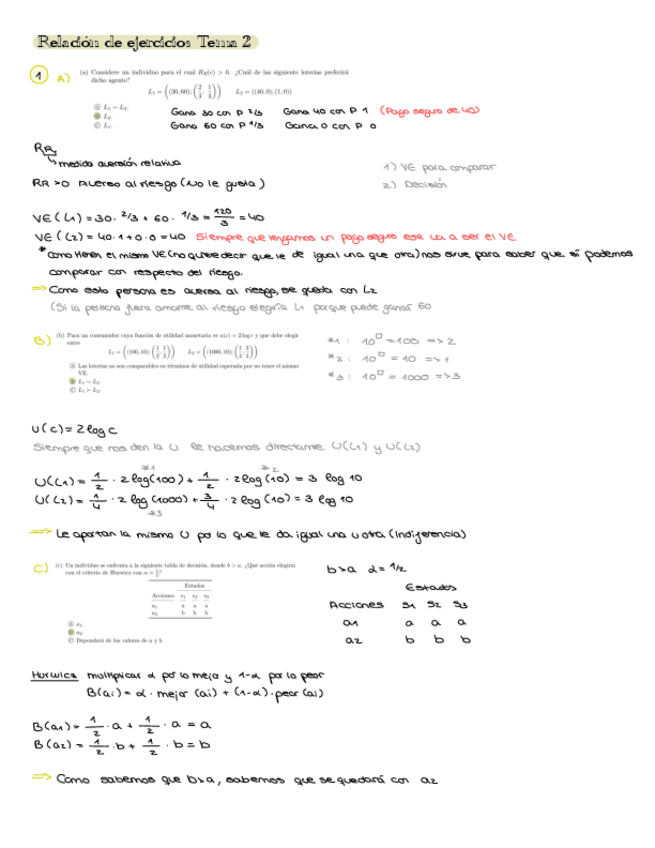 Relación de ejercicios Tema 2
1 A) (a) Considere un individuo para el cual R_R(c) > 0. ¿Cuál de las siguiente loterías preferirá
dicho agente?
L₁ = ((30, 60); (2/3, 1/3)) L₂ = ((40, 0); (1, 0))
Ⓐ L₁ ∼ L₂.
Ⓑ L₂.
Ⓒ L₁.
Gana 30 con P 2/3 Gana 40 con P 1 (Pago seguro de 40)
Gana 60 con P 1/3 Gana 0 con P 0
RR
medida aversión relativa
1) VE para comparar
RR >0 Averso al riesgo (No le gusta)
2) Decisión
VE(L1) = 30 · 2/3 + 60 · 1/3 = 120/3 = 40
VE(L2) = 40 · 1 + 0 · 0 = 40 Siempre que tengamos un pago seguro ese va a ser el VE
* Como tienen el mismo VE (no quiere decir que le de igual una que otra) nos sirve para saber que sí podemos
comparar con respecto del riesgo.
⇒ Como esta persona es aversa al riesgo, se queda con L2
(Si la persona fuera amante al riesgo elegiría L1 porque puede ganar 60
B) (b) Para un consumidor cuya función de utilidad monetaria es u(c) = 2 log c y que debe elegir
entre
L₁ = ((100, 10); (1/2, 1/2)) L₂ = ((1000, 10); (1/4, 3/4))
Ⓐ Las loterías no son comparables en términos de utilidad esperada por no tener el mismo
VE.
Ⓑ L₁ ∼ L₂.
Ⓒ L₁ > L₂.
*1 : 10^□ = 100 => 2
*2 : 10^□ = 10 => 1
*3 : 10^□ = 1000 => 3
U(c) = 2 log c
Siempre que nos den la U le hacemos directamente U(L1) y U(L2)
*1 *2
U(L1) = 1/2 · 2 log(100) + 1/2 · 2 log(10) = 3 log 10
U(L2) = 1/4 · 2 log(1000) + 3/4 · 2 log(10) = 3 log 10
*3
⇒ Le aportan la misma U por lo que le da igual una u otra (indiferencia)
C) (c) Un individuo se enfrenta a la siguiente tabla de decisión, donde b > a. ¿Qué acción elegiría
con el criterio de Hurwicz con α = 1/2?
Estados
Acciones s₁ s₂ s₃
a₁ a a a
a₂ b b b
Ⓐ a₁.
Ⓑ a₂.
Ⓒ Dependerá de los valores de a y b.
b>a α = 1/2
Estados
Acciones S1 S2 S3
a1 a a a
a2 b b b
Hurwicz multiplicar α por lo mejor y 1-α por lo peor
B(ai) = α · mejor (ai) + (1-α) · peor (ai)
B(a1) = 1/2 · a + 1/2 · a = a
B(a2) = 1/2 · b + 1/2 · b = b
⇒ Como sabemos que b>a, sabemos que se quedará con a2